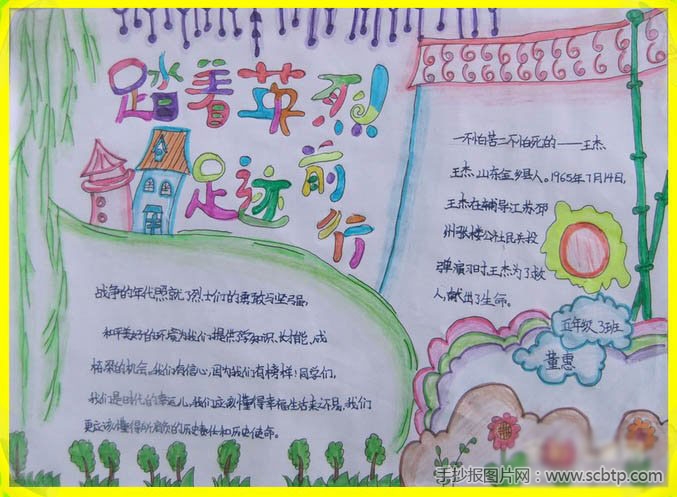 踏着英烈
足迹前
行
一不怕苦二不怕死的——王杰
王杰,山东金乡县人。1965年7月14日,
王杰在辅导江苏邳
州张楼公社民兵投
弹演习时,王杰为了救
人,献出了生命。
五年级3班
董惠
战争的年代照就了烈士们的勇敢与坚强,
和平美好的环境为我们提供学知识、长才能、成
栋梁的机会。我们有信心,因为我们有榜样!同学们,
我们是时代的幸运儿,我们应该懂得幸福生活来之不易,我们
更应该懂得所肩负的历史责任和历史使命。
手抄报图片网:www.scbtp.com